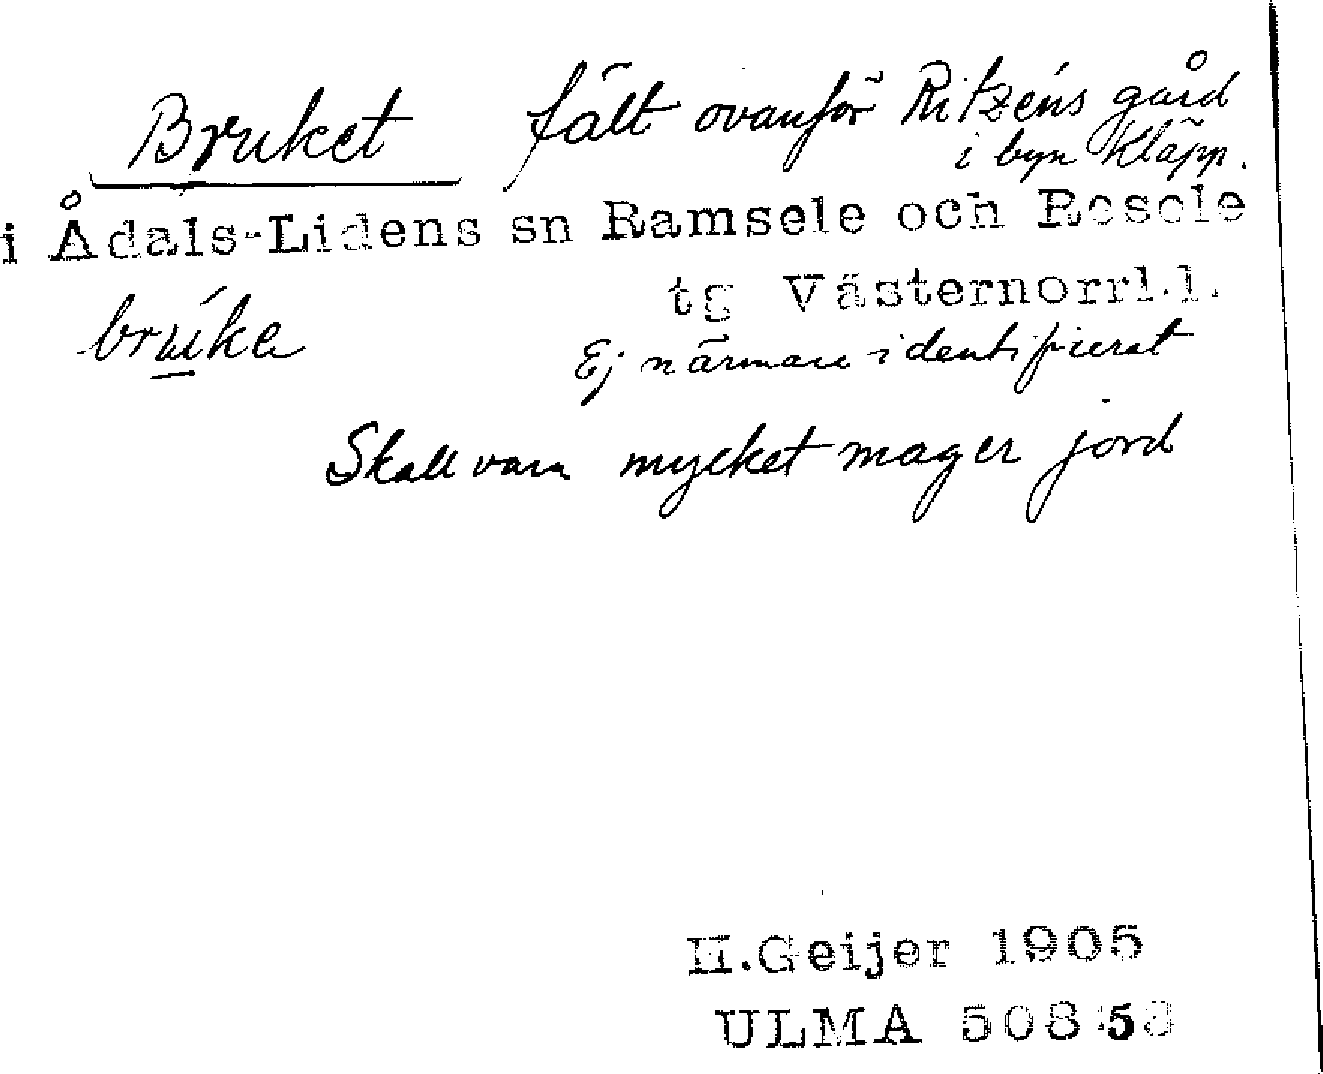 Bruket fält ovanför Ritzéns gård
i byn Kläpp.
i Ådals-Lidens sn Ramsele och Resele
tg Västernorrl.l.
bruke
Ej närmare identifierat
Skall vara mycket mager jord
H.Geijer 1905
ULMA 508:58